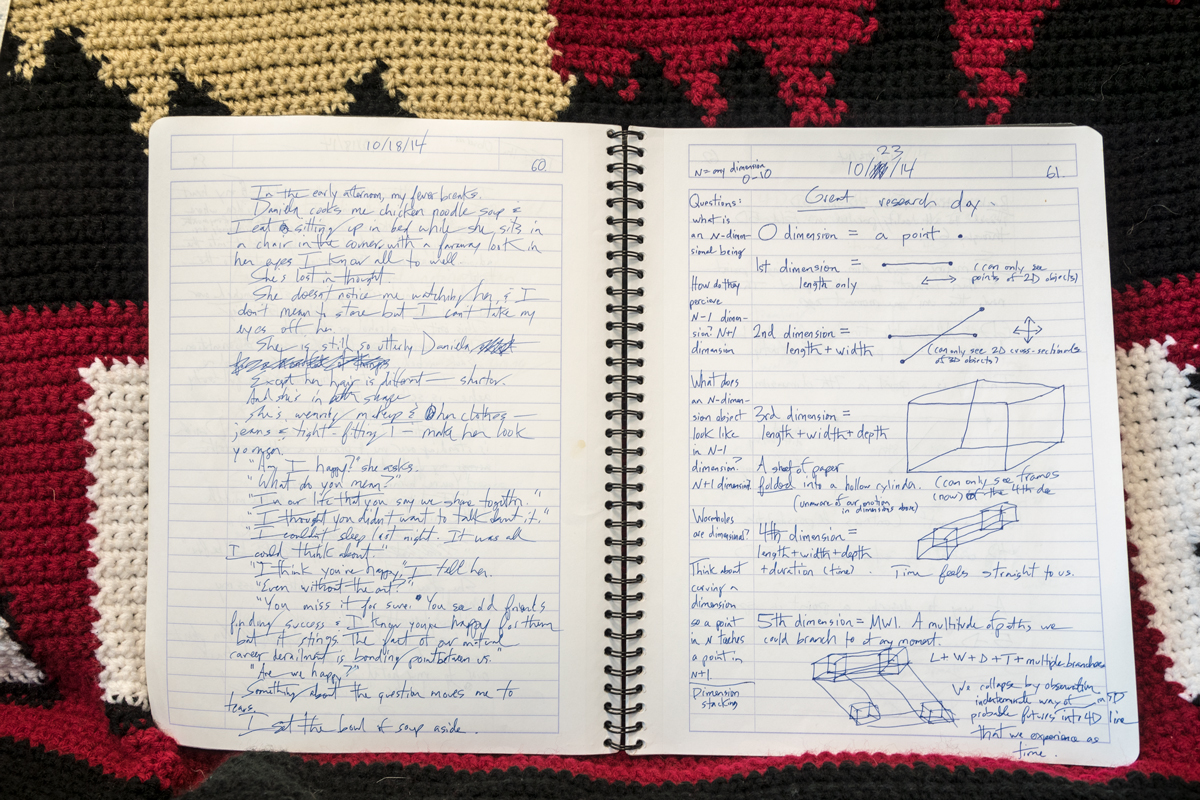 10/18/14
60.
In the early afternoon, my fever breaks.
Daniela cooks me chicken noodle soup &
I eat sitting up in bed while she sits in
a chair in the corner with a faraway look in
her eyes I know all to well.
She's lost in thought.
She doesn't notice me watching her, & I
don't mean to stare but I can't take my
eyes off her.
She is still so utterly Daniela
Except her hair is different — shorter.
And she's in better shape
she's wearing makeup & her clothes —
jeans & tight-fitting T — make her look
younger.
"Am I happy?" she asks.
"What do you mean?"
"In our life that you say we share together."
"I thought you didn't want to talk about it."
"I couldn't sleep last night. It was all
I could think about."
"I think you're happy," I tell her.
"Even without the art?"
"You miss it for sure. You see old friends
finding success & I know you're happy for them
but it stings. The fact of our mutual
career is bonding point between us."
"Are we happy?"
Something about the question moves me to
tears.
I set the bowl of soup aside.
N = any dimension
0-10
23
10/ /14
61.
Great research day.
Questions:
what is
an N-dimen-
sional being
How do they
percieve
N-1 dimen-
sion? N+1
dimension
What does
an N-dimen-
sion object
look like
in N-1
dimension?
N+1 dimension?
Wormholes
are dimensional?
Think about
curving a
dimension
so a point
in N touches
a point in
N+1
Dimension
stacking
0 dimension = a point .
1st dimension =
length only
(can only see
points of 2D objects)
2nd dimension =
length + width
(can only see 2D cross-sections
of 3D objects?)
3rd dimension =
length + width + depth
A sheet of paper
folded into a hollow cylinder.
(can only see frames
(now) of the 4th de
(unaware of our motion
in dimensions above)
4th dimension =
length + width + depth
+ duration (time).
Time feels straight to us.
5th dimension = MWI. A multitude of paths, we
could branch to at any moment.
L + W + D + T + multiple branches
We collapse by observation
indeterminate way of in 5D
probable futures into 4D line
that we experience as
time.